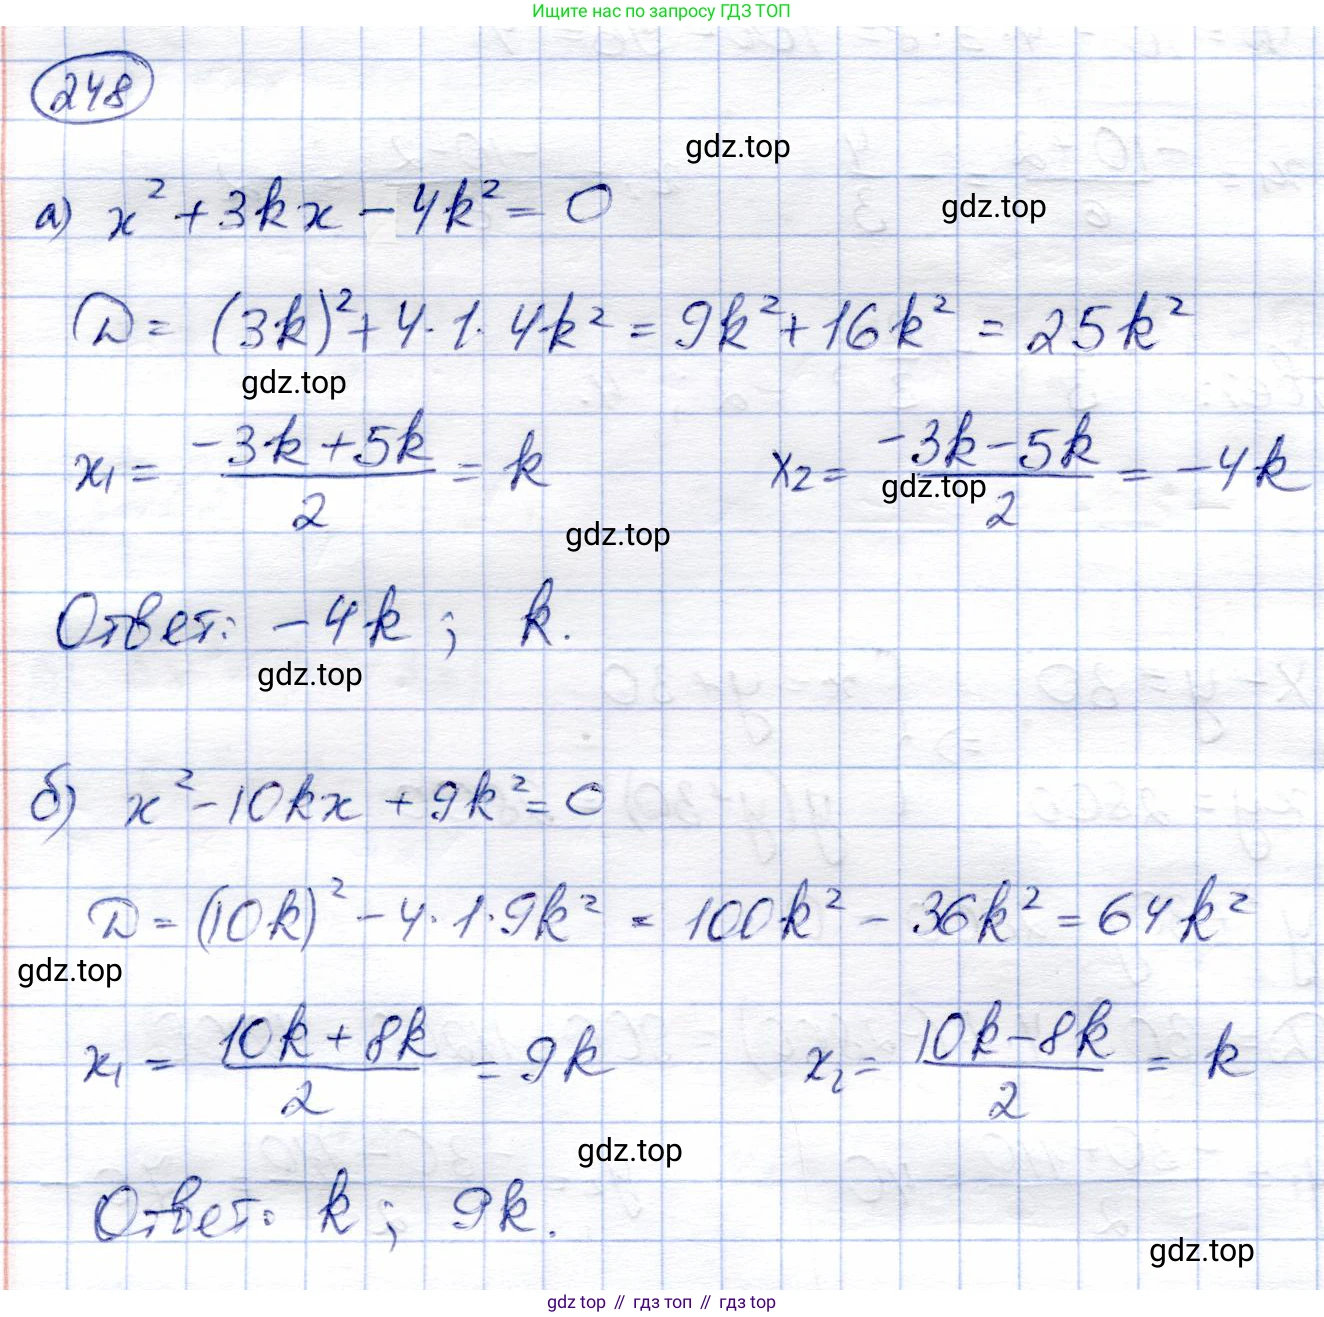 Ищите нас по запросу ГДЗ ТОП
248
gdz.top
а) x² + 3kx − 4k² = 0
gdz.top
D = (3k)² + 4·1·4k² = 9k² + 16k² = 25k²
gdz.top
x₁ = (−3k + 5k)/2 = k x₂ = (−3k − 5k)/2 = −4k
gdz.top
gdz.top
Ответ: −4k ; k.
gdz.top
б) x² − 10kx + 9k² = 0
D = (10k)² − 4·1·9k² = 100k² − 36k² = 64k²
gdz.top
x₁ = (10k + 8k)/2 = 9k x₂ = (10k − 8k)/2 = k
gdz.top
Ответ: k ; 9k.
gdz.top
gdz top // гдз топ // гдз top